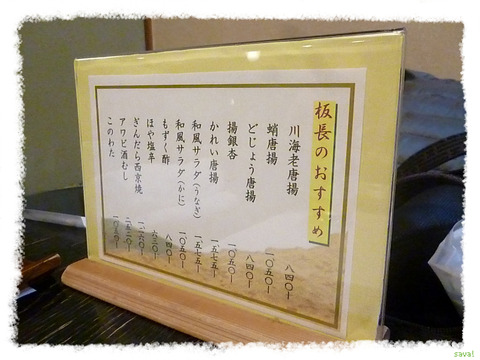 板長のおすすめ
川海老唐揚 八四〇ー
蛸唐揚 一〇五〇ー
どじょう唐揚 八四〇ー
揚銀杏 一〇五〇ー
かれい唐揚 一五七五ー
和風サラダ(うなぎ) 一五七五ー
和風サラダ(かに) 一〇五〇ー
もずく酢 八四〇ー
ほや塩辛 六三〇ー
ぎんだら西京焼 一二六〇ー
アワビ酒むし 二五二〇ー
このわた 一〇五〇ー
sava!